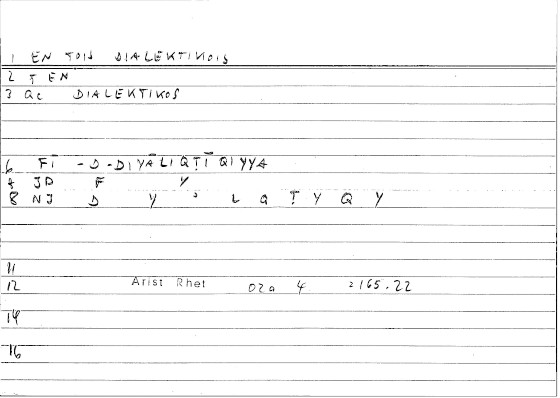 1 EN TOIS DIALEKTIKOIS
2 T EN
3 Qc DIALEKTIKOS
6 FĪ -D-DIYĀLIQTĪQIYYA
JD F Y
8 NJ D Y ' L Q T Y Q Y
11
12 Arist. Rhet 02a 4 2165.22
14
16